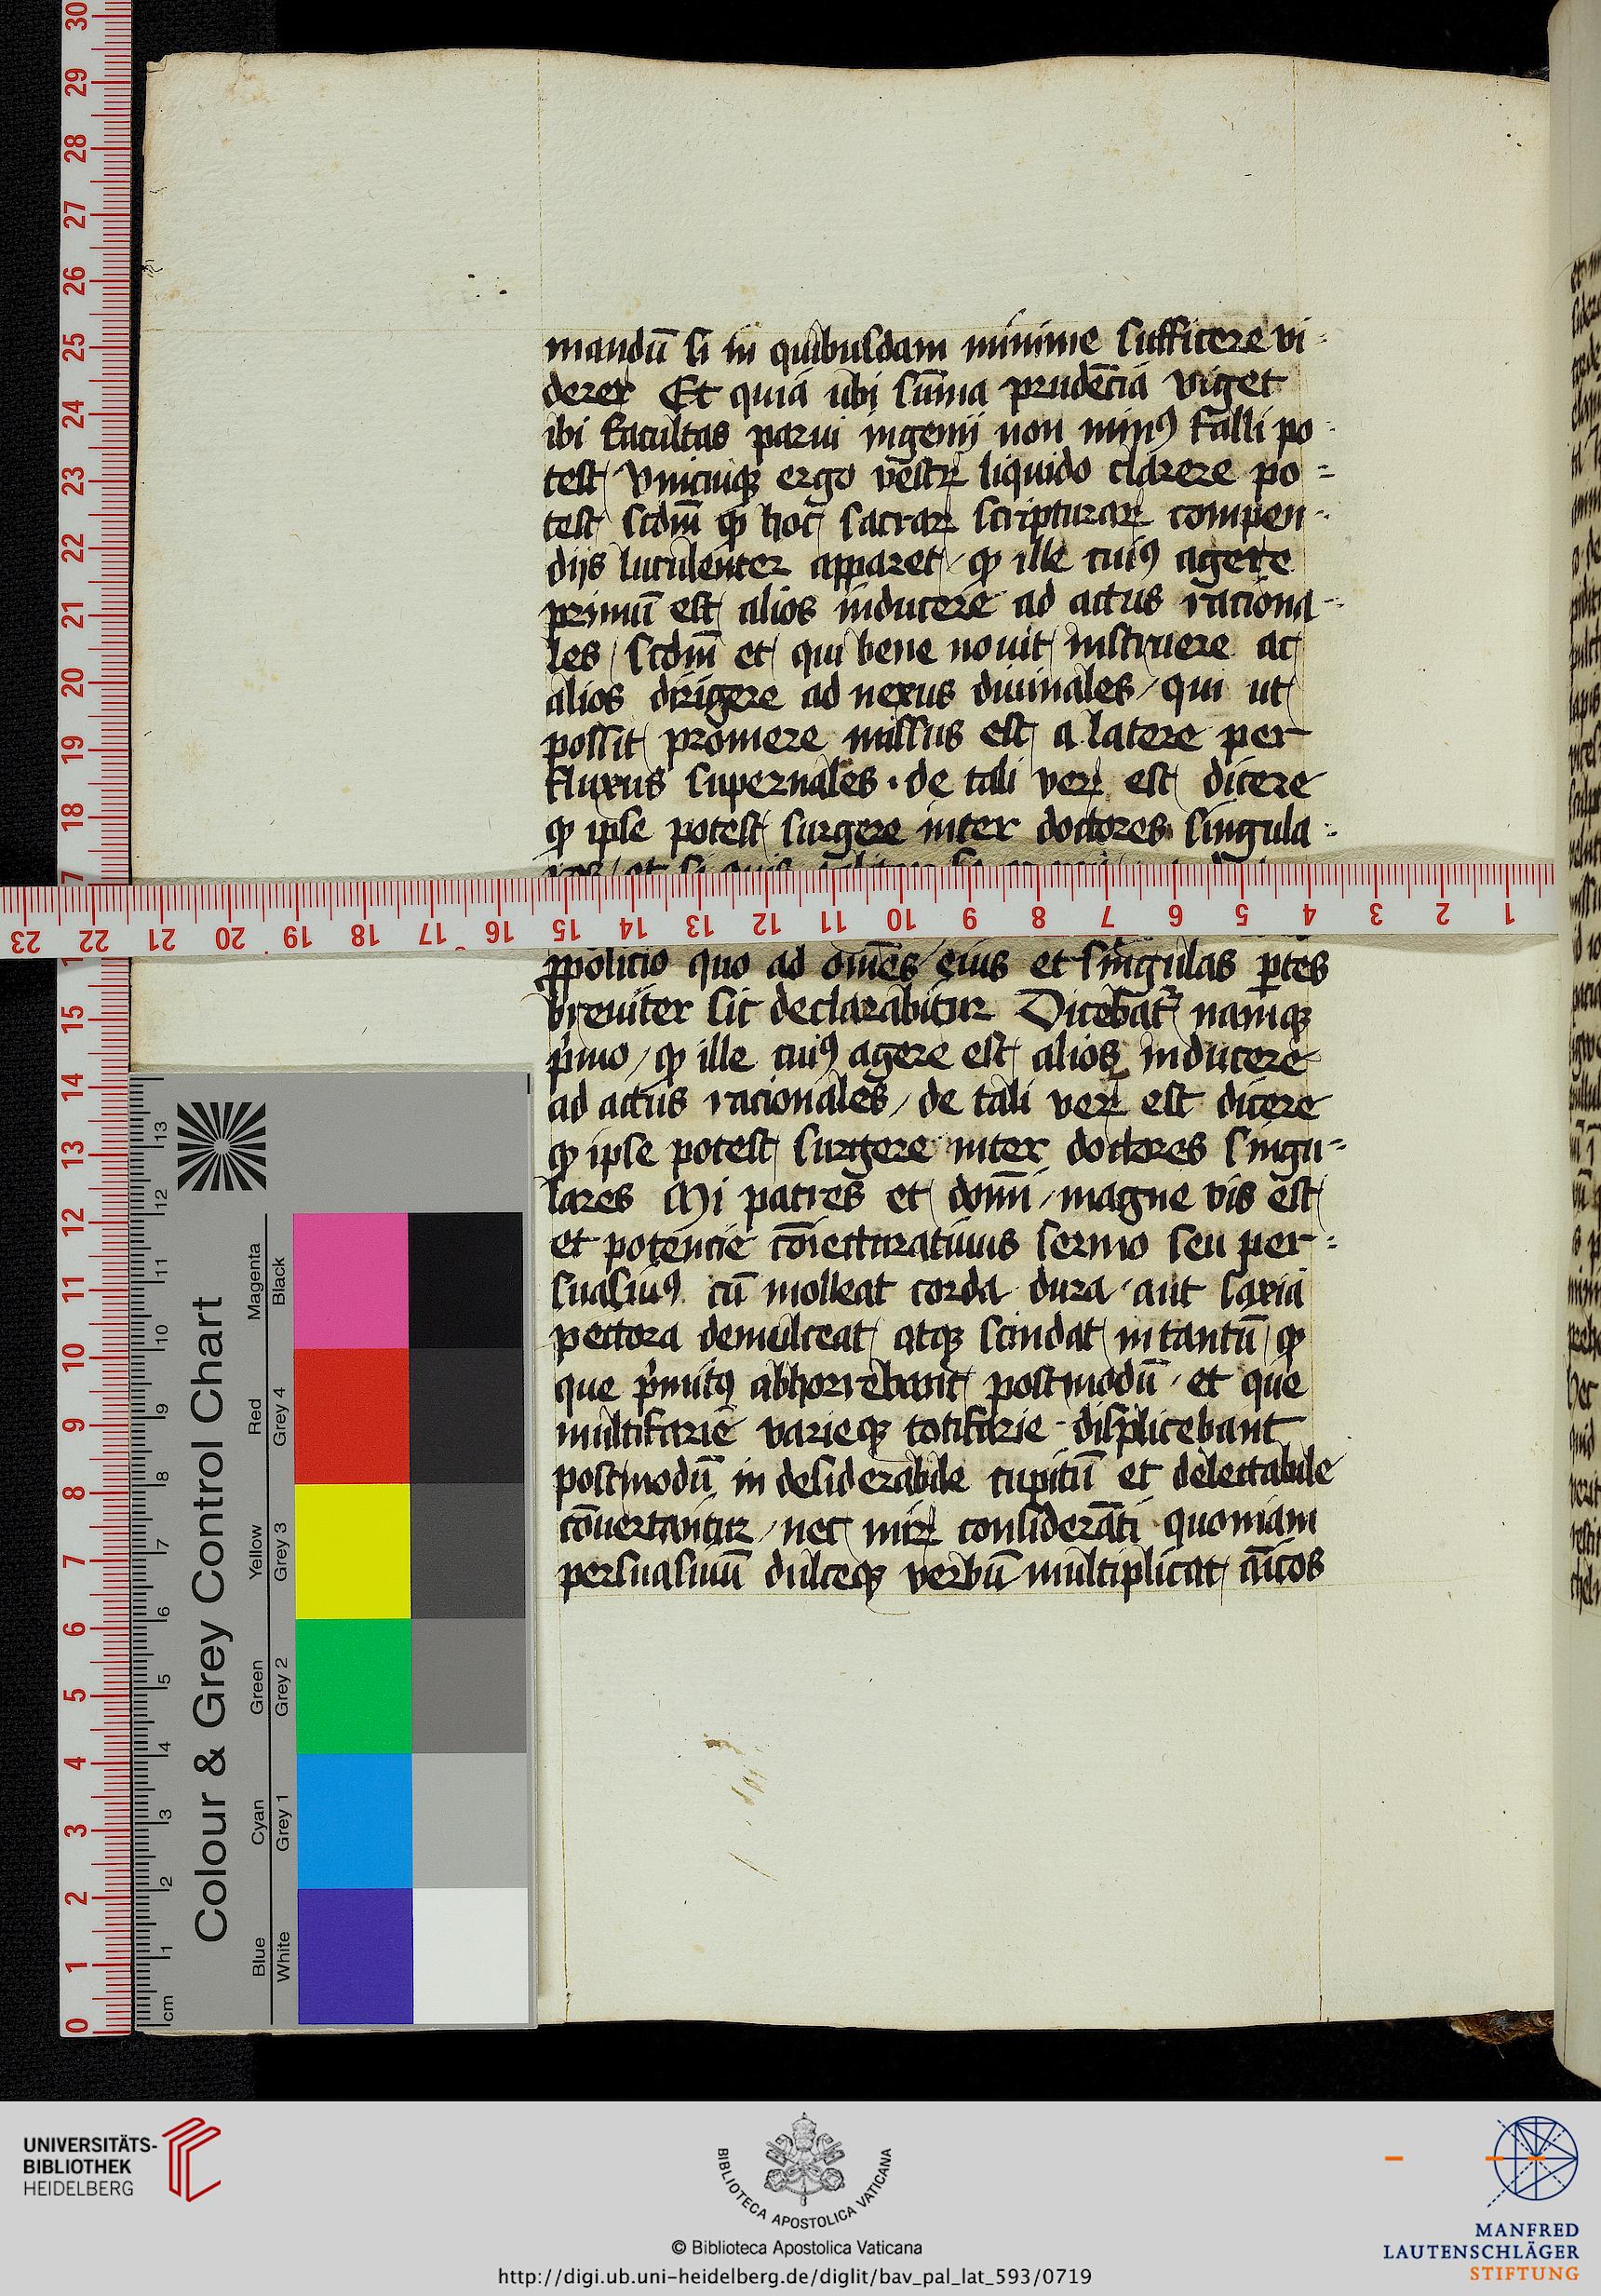 mandū si in quibusdam minime sufficere vi-
derer Et quia ubi sūma prudēcia viget
ibi facultas parui ingenij non minꝯ falli po-
test vnicuiqꝫ ergo vestrꝝ liquido clarere po-
test scdm̄ ꝙ hoc sacrarꝝ scripturarꝝ compen-
dijs luculenter apparet / ꝙ ille cuiꝯ agere
primū est alios inducere ad actus raciona-
les / scdm̄ et qui bene nouit instruere ac
alios dirigere ad nexus diuinales / qui ut
possit promere missus est a latere per
fluxus supernales · de tali verꝝ est dicere
ꝙ ipse potest surgere inter doctores singula-
ꝓpolicio quo ad om̄es eius et singulas ꝑtes
breuiter sic declarabitur Dicebat᷑ namqꝫ
p̓mo / ꝙ ille cuiꝯ agere est alios inducere
ad actus racionales / de tali verꝝ est dicere
ꝙ ipse potest surgere inter doctores singu-
lares Mi patres et domī / magne vis est
et potencie cōiecturatiuus sermo seu per-
suasiuꝯ cū molleat corda dura · aut saxia
pectora demulceat atqꝫ scindat in tantū ꝙ
que p̓mitꝯ abhorrebant postmodū · et que
multifarie varieqꝫ totifarie displicebant
postmodū in desiderabile cupitū et delectabile
cōuertantur / nec mirꝝ considerāti quoniam
persuasiuū dulceqꝫ verbū multiplicat amīcos
30
29
28
27
26
25
24
23
22
21
20
19
18
17
15
14
13
12
11
10
9
8
7
6
5
4
3
2
1
0
23 22 21 20 19 18 17 16 15 14 13 12 11 10 9 8 7 6 5 4 3 2 1
Colour & Grey Control Chart
Blue Cyan Green Yellow Red Magenta
White Grey 1 Grey 2 Grey 3 Grey 4 Black
cm 1 2 3 4 5 6 7 8 9 10 11 12 13
UNIVERSITÄTS-
BIBLIOTHEK
HEIDELBERG
BIBLIOTECA APOSTOLICA VATICANA
© Biblioteca Apostolica Vaticana
http://digi.ub.uni-heidelberg.de/diglit/bav_pal_lat_593/0719
MANFRED
LAUTENSCHLÄGER
STIFTUNG